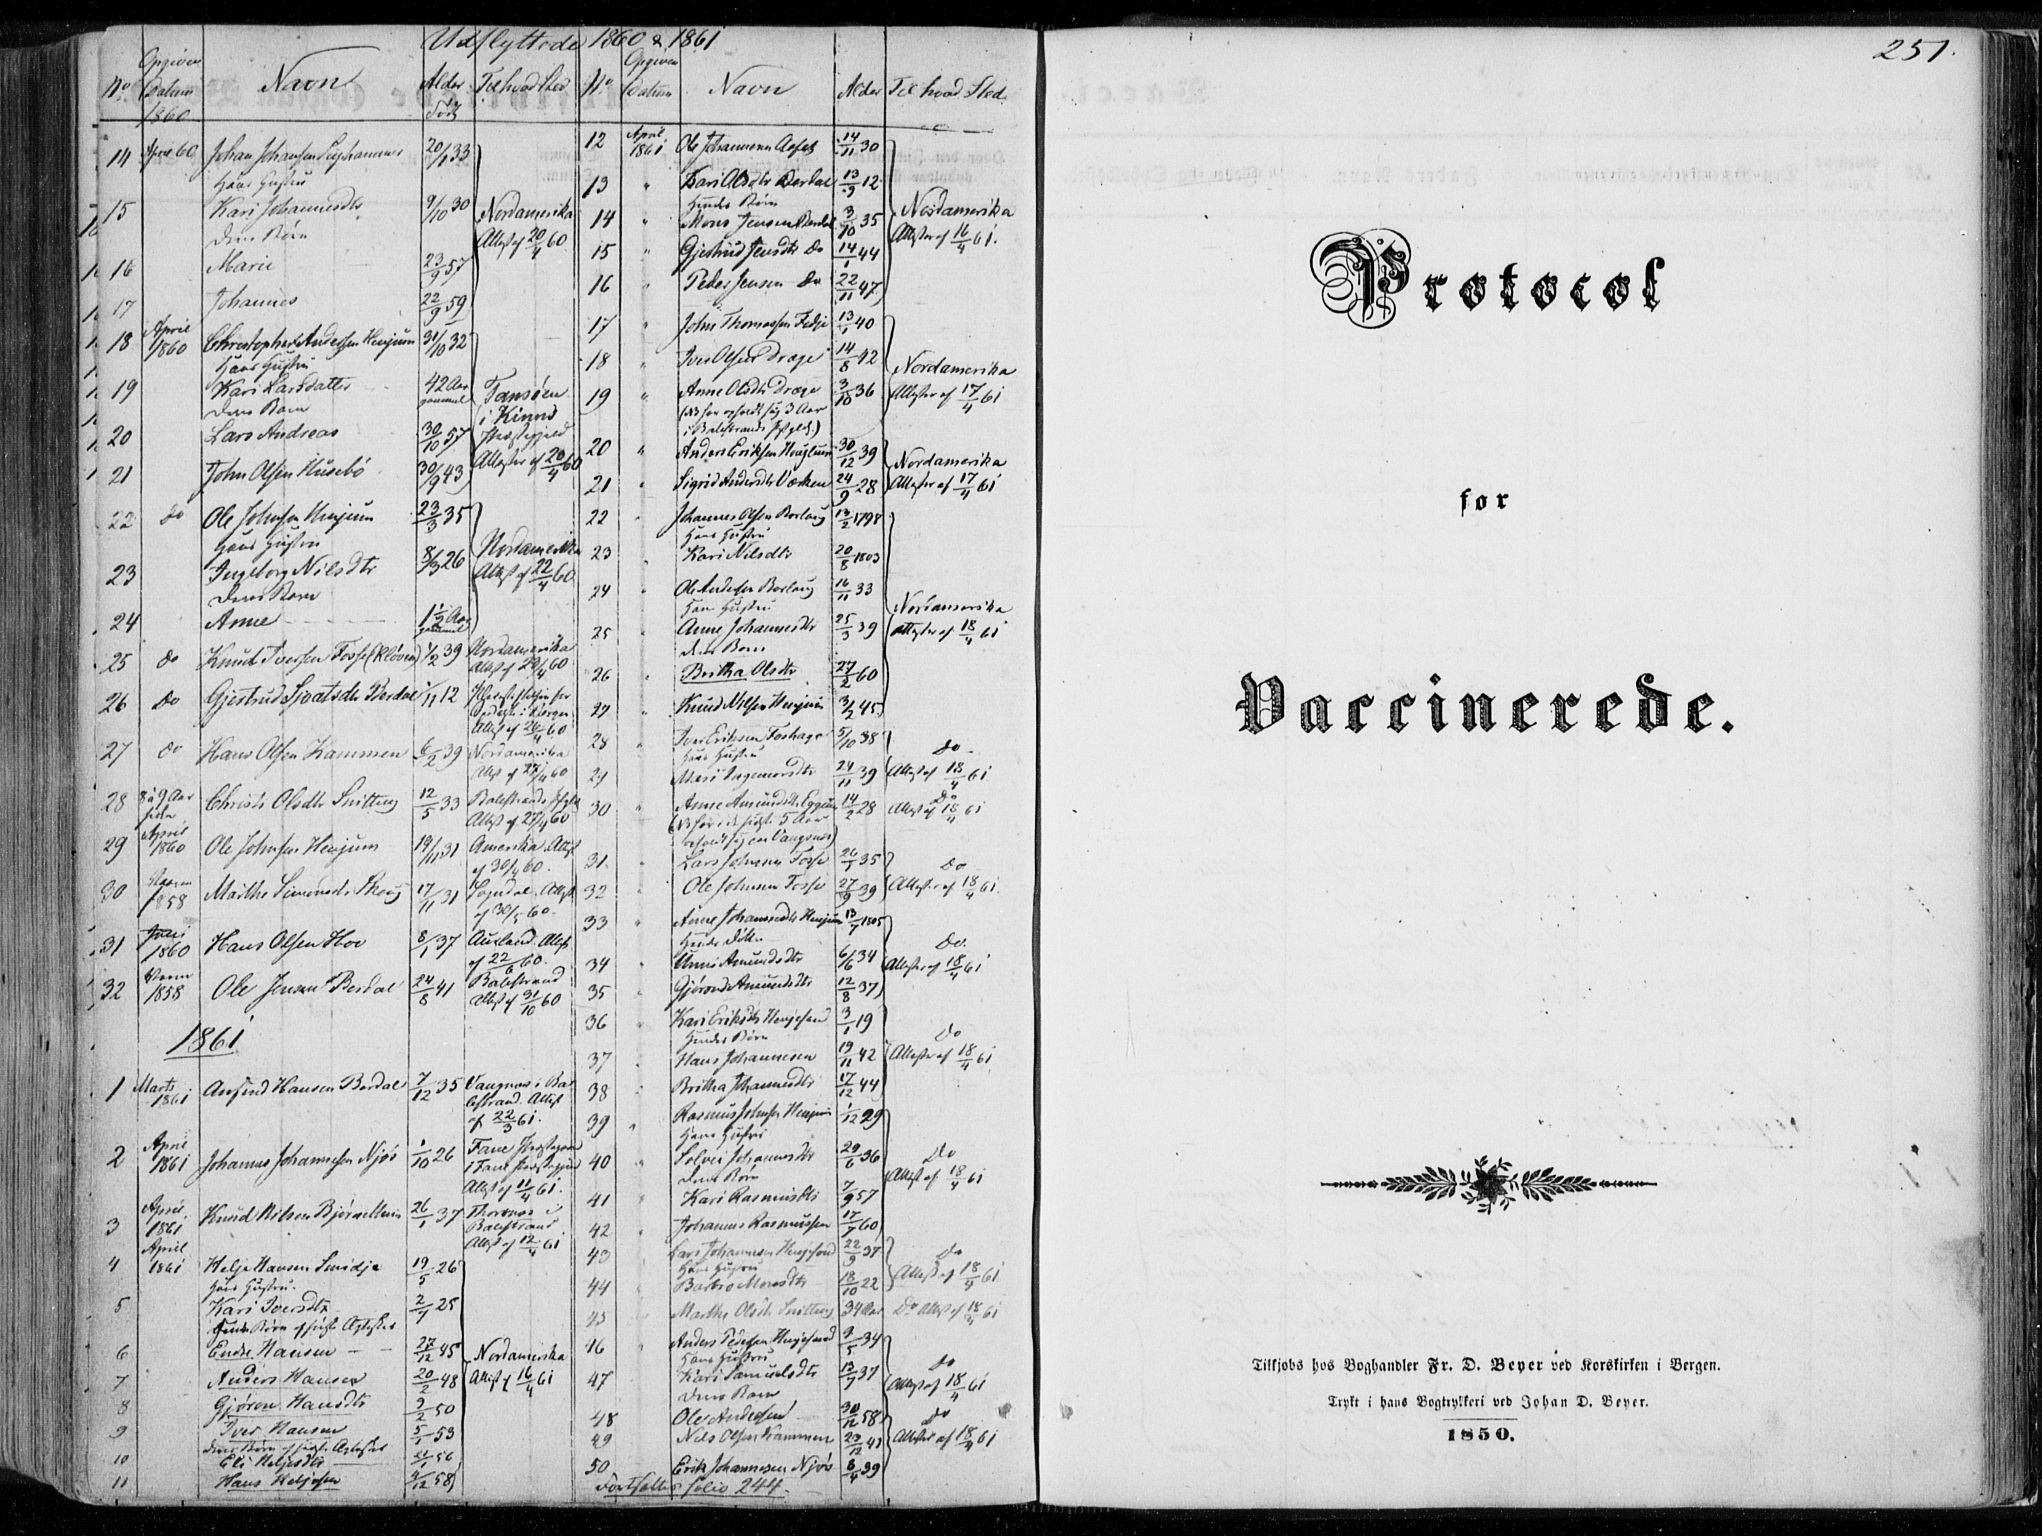 Udflyttede 1860 & 1861
No Opgiven Datum 1860 Navn Alder Født Til hvad Sted
14 April 60 Johan Johansen 20/1 33
Hans Hustru
15 Kari Johannesdtr 9/10 30 Nordamerika
deres Børn Attest af 20/4 60
16 Marie 23/9 57
17 Johannes 22/9 59
18 April 1860 Christopher Andersen Henjum 31/10 32
Hans Hustru
19 Kari Larsdatter 42 Aar gammel Tansøen
deres Barn i Kinns
20 Lars Andreas 30/10 57 Præstegjeld
21 John Olsen Husebø 30/9 43 Attester af 20/4 60
22 do Ole Johnsen Henjum 23/3 35
Hans Hustru
23 Ingeborg Nilsdtr 8/3 26 Nordamerika
deres Barn Attest af 22/4 60
24 Anne 1 1/2 Aar gammel
25 do Knut Iversen Fosse (Kløven) 1/2 39 Nordamerika
Attest af 24/4 60
26 do Gjertrud Sjvatsdtr Berdal 1/11 12
i Bergen
Attest af 26/4 60
27 do Hans Olsen Kammen 6/2 39 Nordamerika
Attest af 27/4 60
28 8 à 9 Aar siden Christi Olsdtr Snitteng 12/5 33 Balestrands
Attest af 27/4 60
29 April 1860 Ole Johnsen Henjum 19/11 31 Amerika Attest
af 30/4 60
30 1858 Marthe Simonsdtr Skoug 17/11 31 Sogndal. Attest
af 30/5 60
31 Juni 1860 Hans Olsen Hov 8/1 37 Aurland. Attest
af 22/6 60
32 1858 Ole Jensen Berdal 24/8 41 Balestrand
Attest af 31/10 60
1861
1 Marts 1861 Amund Hansen Berdal 7/12 35 Vangsnes i Ba
lestrand. Attest
af 22/3 61.
2 April 1861 Johannes Johannesen Njøs 1/10 26 Fane Præstegaard
i Fane Præstegjeld
Attest af 11/4 61.
3 April 1861 Knud Nilsen Bjørnetun 26/1 37
Balestrand
Attest af 12/4 61
4 April 1861 Helje Hansen Smidje 19/5 26
Hans Hustru
5 Kari Iversdtr 2/7 25
hendes Børn af første Ægteskab
6 Endre Hansen 27/12 45 Nordamerika
7 Anders Hansen 20/2 48 Attest af 16/4 61
8 Gjøron Hansdtr 9/2 50
9 Iver Hansen 5/1 53
deres Børn af sidste Ægteskab
10 Eli Heljesdtr 56
11 Hans Heljesen 4/12 58
No Opgiven Datum Navn Alder Til hvad Sted
12 April 1861 Ole Johannesen 14/11 30
13 " Kari Olsdtr Berdal 13/9 12
Hendes Børn Nordamerika
14 " Mons Jensen Berdal 3/10 35 Attester af 16/4 61.
15 " Gjertrud Jensdtr do 14/1 44
16 " Peder Jensen do 22/11 47
17 " John Thomassen Fedje 13/1 40
18 " Iver Olsen Dræge 14/8 42 Nordamerika
19 " Anne Olsdtr Dræge 3/10 36 Attester af 17/4 61
(NB har opholdt sig 3 Aar
i Balestrands Pgjeld.)
20 " Anders Eriksen Houglum 30/12 39 Nordamerika
21 " Sigrid Andersdtr Væken 24/9 28 Attester af 17/4 61
22 " Johannes Olsen Borlaug 13/2 1798
Hans Hustru
23 " Kari Nilsdtr 20/8 1803
24 " Ole Andersen Borlaug 16/11 33
Hans Hustru Nordamerika
25 " Anne Johannesdtr 25/3 39 Attester af 18/4 61
deres Barn
26 " Britha Olsdtr 27/2 60
27 " Knud Nilsen Henjum 3/2 45
28 " Iver Eriksen Foshage 5/10 38 Do
Hans Hustru
29 " Mari Ingemundsdtr 24/11 39 Attest af 18/4 61
30 " Anne Amundsdtr Eggum 14/2 28 Do Attest af 18/4 61
(NB har i de sidste 5 Aar
opholdt sig paa Vangsnes)
31 " Lars Johnsen Fosse 26/1 35 Do
32 " Ole Johnsen Fosse 27/9 39 Attester af 18/4 61.
33 " Anne Johannesdtr Henjum 13/7 1805
Hendes Døttre Do.
34 " Unni Amundsdtr 6/6 34 Attester af 18/4 61
35 " Gjøron Amundsdtr 12/8 37
36 " Kari Eriksdtr Henjesand 3/1 19
Hendes Børn Do
37 " Hans Johannesen 19/11 42 Attester af 18/4 61
38 " Britha Johannesdtr 17/12 44
39 " Rasmus Johnsen Henjum 1/12 29
Hans Hustru
40 " Solvei Johannesdtr 29/6 36 Do
deres Børn Attest af 18/4 61
41 " Kari Rasmusdtr 7/9 57
42 " Johannes Rasmussen 17/7 60
43 " Lars Johannesen Henjesand 22/9 37 Do
Hans Hustru Attest af 18/4 61
44 " Barbro Monsdtr 18/10 22
45 " Marthe Olsdtr Snitteng 34 Aar Do Attest af 18/4 61
46 " Anders Pedersen Henjesand 9/5 34
Hans Hustru do
47 " Kari Samuelsdtr 13/7 37 Attest af 18/4 61
deres Barn
48 Ole Andersen 30/12 58 Do
49 Nils Olsen Kammen 23/12 41 Attester af 18/4 61
50 Erik Johannesen Njøs 8/4 39
Fortsættes folio 244.
251.
Protocol
for
Vaccinerede.
Tilkjøbs hos Boghandler Fr. D. Beyer ved Korskirken i Bergen.
Trykt i hans Bogtrykkeri ved Johan D. Beyer.
1850.